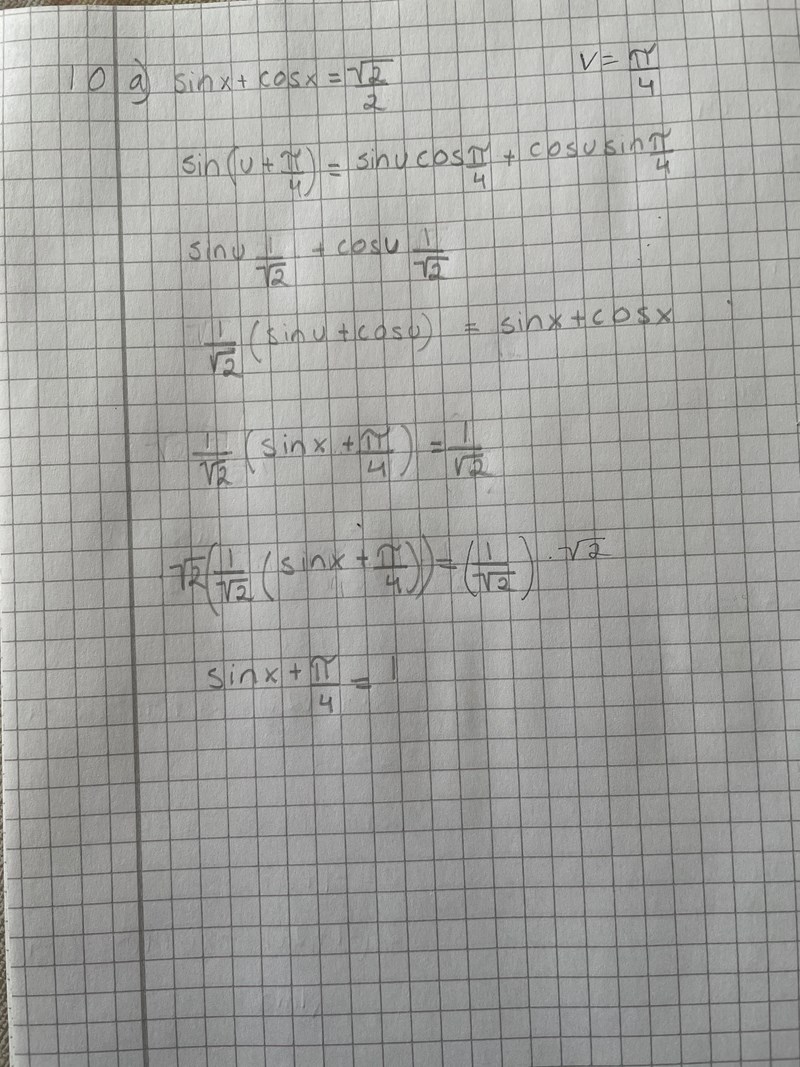 10 a) sinx + cosx = √2/2 v = π/4
sin(u + π/4) = sinu cos π/4 + cosu sin π/4
sinu 1/√2 + cosu 1/√2
1/√2 (sinu + cosu) = sinx + cosx
1/√2 (sinx + π/4) = 1/√2
√2(1/√2 (sinx + π/4)) = (1/√2) · √2
sinx + π/4 = 1